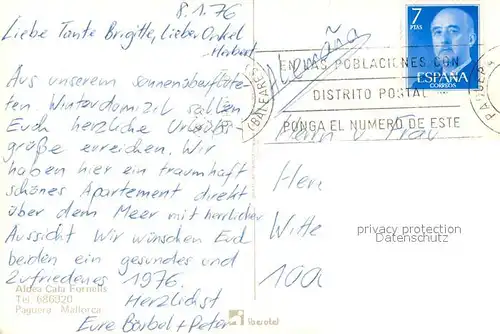 8.1.76
Liebe Tante Brigitte, lieber Onkel
Herbert
Aus unserem sonnenüberflute-
ten Winterdomizil sollen
Euch herzliche Urlaubs-
grüße erreichen. Wir
haben hier ein traumhaft
schönes Apartement direkt
über dem Meer mit herrlicher
Aussicht Wir wünschen Euch
beiden ein gesundes und
zufriedenes 1976.
Herzlichst
Eure Bärbel + Peter
Aldea Cala Fornells
Tel. 686920
Paguera Mallorca
7
PTAS
ESPAÑA
CORREOS
EN LAS POBLACIONES CON
DISTRITO POSTAL
PONGA EL NUMERO DE ESTE
(BALEARES)
PAGUERA
Alemaña
Herrn u. Frau
Witte
100
privacy protection
Datenschutz
iberotel